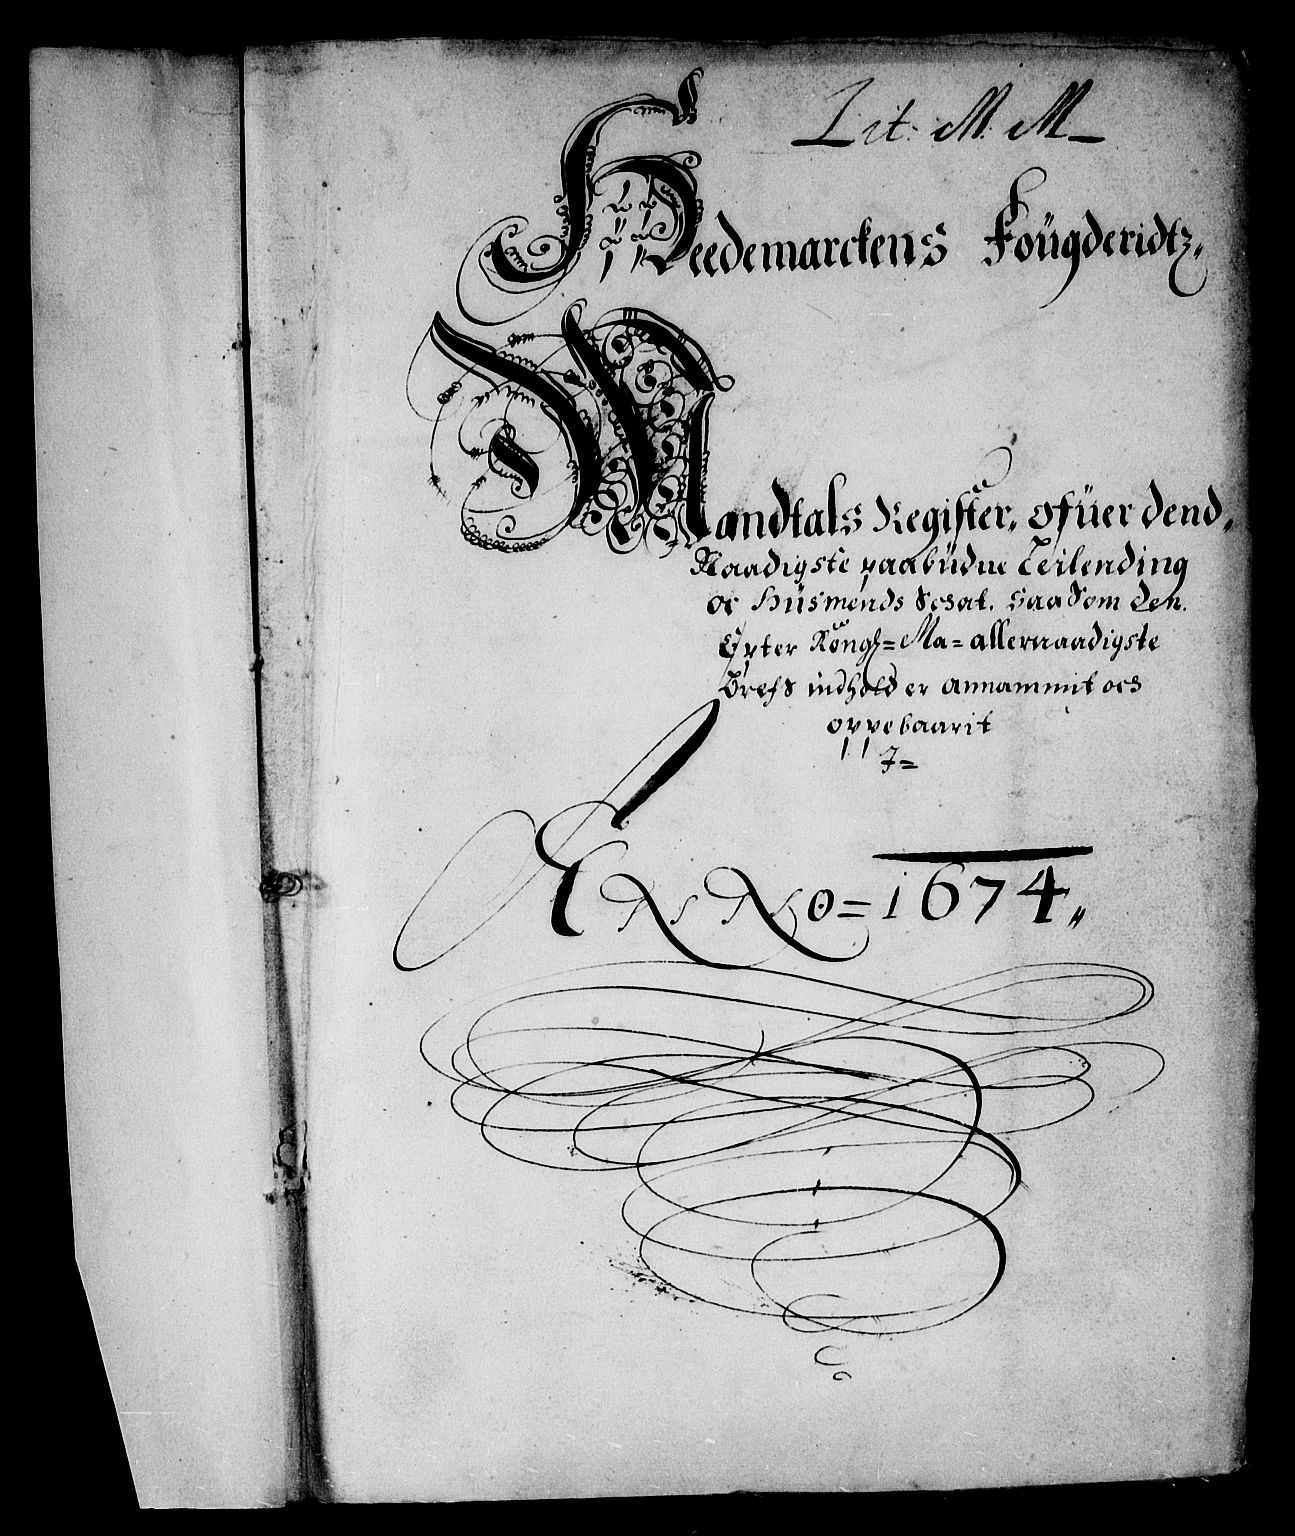 Lit. M. M.
Heedemarckens Foügderidtz.
Mandtals Register. ofüer dend,
Naadigste paabüdne Leilending
oc Hüsmends Schat. Saa Som den.
Epter Kongl= Ma= allernaadigste
Brefs indhold er annammit och
oppebaarit
ANNo= 1674,,